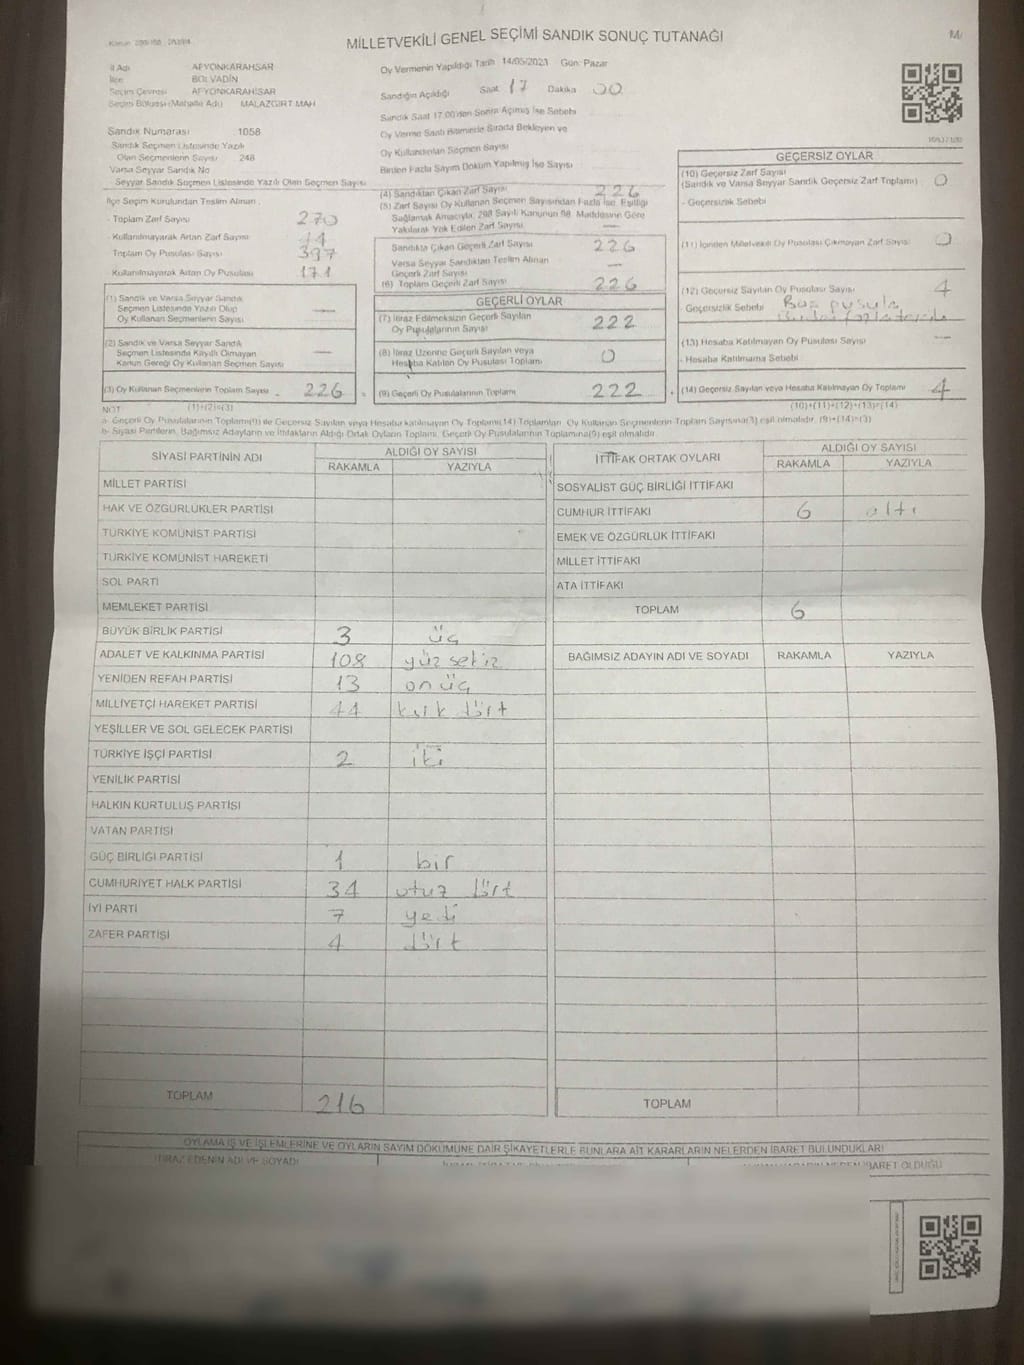 MİLLETVEKİLİ GENEL SEÇİMİ SANDIK SONUÇ TUTANAĞI
İl Adı AFYONKARAHİSAR
İlçe BOLVADİN
Seçim Çevresi AFYONKARAHİSAR
Seçim Bölgesi (Mahalle Adı) MALAZGİRT MAH
Sandık Numarası 1058
Sandık Seçmen Listesinde Yazılı
Olan Seçmenlerin Sayısı 248
Varsa Seyyar Sandık No
Seyyar Sandık Seçmen Listesinde Yazılı Olan Seçmen Sayısı
İlçe Seçim Kurulundan Teslim Alınan
- Toplam Zarf Sayısı 270
- Kullanılmayarak Artan Zarf Sayısı 44
Toplam Oy Pusulası Sayısı 397
Kullanılmayarak Artan Oy Pusulası 171
(1) Sandık ve Varsa Seyyar Sandık
Seçmen Listesinde Yazılı Olup
Oy Kullanan Seçmenlerin Sayısı —
(2) Sandık ve Varsa Seyyar Sandık
Seçmen Listesinde Kayıtlı Olmayan
Kanun Gereği Oy Kullanan Seçmen Sayısı —
(3) Oy Kullanan Seçmenlerin Toplam Sayısı 226
(1)+(2)=(3)
Oy Vermenin Yapıldığı Tarih 14/05/2023 Gün: Pazar
Sandığın Açıldığı Saat 17 Dakika 00
Sandık Saat 17.00'den Sonra Açılmış İse Sebebi
Oy Verme Saati Bitiminde Sırada Bekleyen ve
Oy Kullandırılan Seçmen Sayısı
Birden Fazla Sayım Döküm Yapılmış İse Sayısı
(4) Sandıktan Çıkan Zarf Sayısı 226
(5) Zarf Sayısı Oy Kullanan Seçmen Sayısından Fazla İse, Eşitliği
Sağlamak Amacıyla, 298 Sayılı Kanunun 98. Maddesine Göre
Yakılarak Yok Edilen Zarf Sayısı —
Sandıkta Çıkan Geçerli Zarf Sayısı 226
Varsa Seyyar Sandıktan Teslim Alınan
Geçerli Zarf Sayısı —
(6) Toplam Geçerli Zarf Sayısı 226
GEÇERLİ OYLAR
(7) İtiraz Edilmeksizin Geçerli Sayılan
Oy Pusulalarının Sayısı 222
(8) İtiraz Üzerine Geçerli Sayılan veya
Hesaba Katılan Oy Pusulası Toplamı 0
(9) Geçerli Oy Pusulalarının Toplamı 222
GEÇERSİZ OYLAR
(10) Geçersiz Zarf Sayısı
(Sandık ve Varsa Seyyar Sandık Geçersiz Zarf Toplamı) 0
- Geçersizlik Sebebi
(11) İçinden Milletvekili Oy Pusulası Çıkmayan Zarf Sayısı 0
(12) Geçersiz Sayılan Oy Pusulası Sayısı 4
Geçersizlik Sebebi
(13) Hesaba Katılmayan Oy Pusulası Sayısı —
- Hesaba Katılmama Sebebi
(14) Geçersiz Sayılan veya Hesaba Katılmayan Oy Toplamı 4
(10)+(11)+(12)+(13)=(14)
NOT
a- Geçerli Oy Pusulalarının Toplamı(9) ile Geçersiz Sayılan veya Hesaba katılmayan Oy Toplamı(14) Toplamları, Oy Kullanan Seçmenlerin Toplam Sayısına(3) eşit olmalıdır. (9)+(14)=(3)
b- Siyasi Partilerin, Bağımsız Adayların ve İttifakların Aldığı Ortak Oyların Toplamı, Geçerli Oy Pusulalarının Toplamına(9) eşit olmalıdır.
SİYASİ PARTİNİN ADI ALDIĞI OY SAYISI
RAKAMLA YAZIYLA
MİLLET PARTİSİ
HAK VE ÖZGÜRLÜKLER PARTİSİ
TÜRKİYE KOMÜNİST PARTİSİ
TÜRKİYE KOMÜNİST HAREKETİ
SOL PARTİ
MEMLEKET PARTİSİ
BÜYÜK BİRLİK PARTİSİ 3 üç
ADALET VE KALKINMA PARTİSİ 108 yüz sekiz
YENİDEN REFAH PARTİSİ 13 on üç
MİLLİYETÇİ HAREKET PARTİSİ 44 kırk dört
YEŞİLLER VE SOL GELECEK PARTİSİ
TÜRKİYE İŞÇİ PARTİSİ 2 iki
YENİLİK PARTİSİ
HALKIN KURTULUŞ PARTİSİ
VATAN PARTİSİ
GÜÇ BİRLİĞİ PARTİSİ 1 bir
CUMHURİYET HALK PARTİSİ 34 otuz dört
İYİ PARTİ 7 yedi
ZAFER PARTİSİ 4 dört
TOPLAM 216
İTTİFAK ORTAK OYLARI ALDIĞI OY SAYISI
RAKAMLA YAZIYLA
SOSYALİST GÜÇ BİRLİĞİ İTTİFAKI
CUMHUR İTTİFAKI 6 altı
EMEK VE ÖZGÜRLÜK İTTİFAKI
MİLLET İTTİFAKI
ATA İTTİFAKI
TOPLAM 6
BAĞIMSIZ ADAYIN ADI VE SOYADI RAKAMLA YAZIYLA
TOPLAM
OYLAMA İŞ VE İŞLEMLERİNE VE OYLARIN SAYIM DÖKÜMÜNE DAİR ŞİKAYETLERLE BUNLARA AİT KARARLARIN NELERDEN İBARET BULUNDUKLARI
İTİRAZ EDENİN ADI VE SOYADI
İBARET OLDUĞU